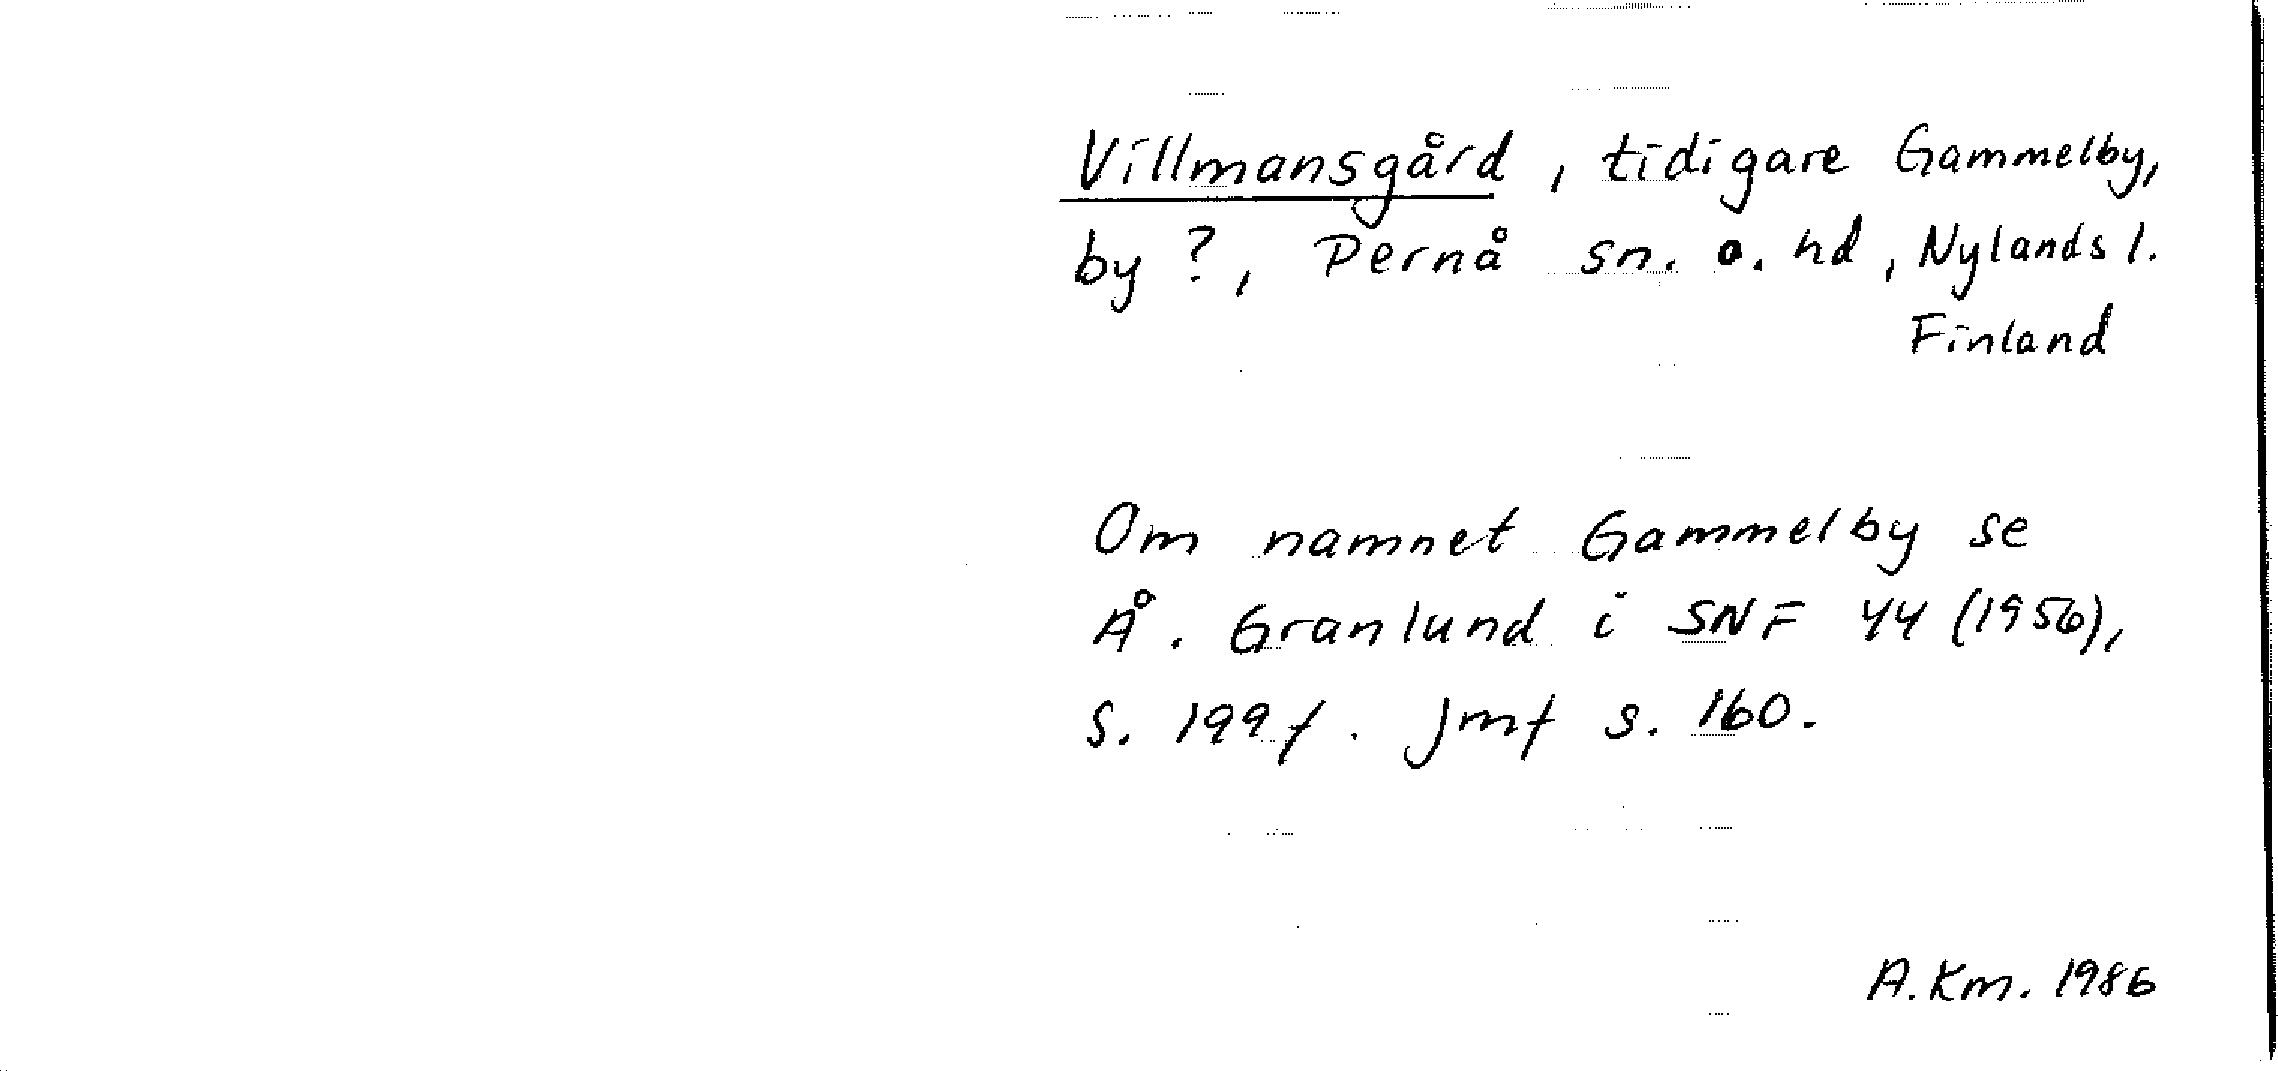 Villmansgård, tidigare Gammelby,
by ?, Pernå sn. o. hd, Nylands l.
Finland
Om namnet Gammelby se
Å. Granlund i SNF 44 (1956),
s. 199 f. Jmf s. 160.
A.Km. 1986